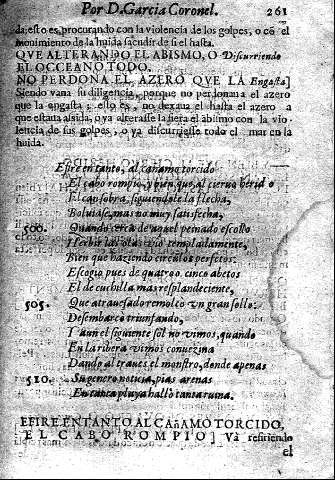 Por D. Garcia Coronel. 261
da, esto es, procurando con la violencia de los golpes, o cō el
mouimiento de la huida sacudir de si el hasta.
QVE ALTERANDO EL ABISMO, O Discurriendo
EL OCCEANO TODO.
NO PERDONA EL AZERO QVE LA Engasta]
Siendo vana su diligencia, porque no perdonaua el azero
que la engasta, ello es, no dexaua el hasta el azero a
que estaua asida, o ya alterasse la fiera el abismo con la vio-
lencia de sus golpes, o ya discurriesse todo el mar en la
huida.
Efire en tanto, al cañamo torcido
El cabo rompio, y bien que al cieruo herido
El can sobra, siguiendole la flecha,
Boluiase, mas no muy satisfecha,
500. Quando cerca de aquel peinado escollo
Heruir las olas vio templadamente,
Bien que haziendo circulos perfetos:
Escogio pues de quatro o cinco abetos
El de cuchilla mas resplandeciente,
505. Que atrauesado remolcò vn gran sollo:
Desembarcò triunfando,
Y aun el siguiente sol no vimos, quando
En la ribera vimos conuezina
Dando al traues el monstro, donde apenas
510. Su genero noticia, pias arenas
En tanta playa hallò tanta ruina.
EFIRE EN TANTO AL CAñAMO TORCIDO,
EL CABO ROMPIO] Và refiriendo
el